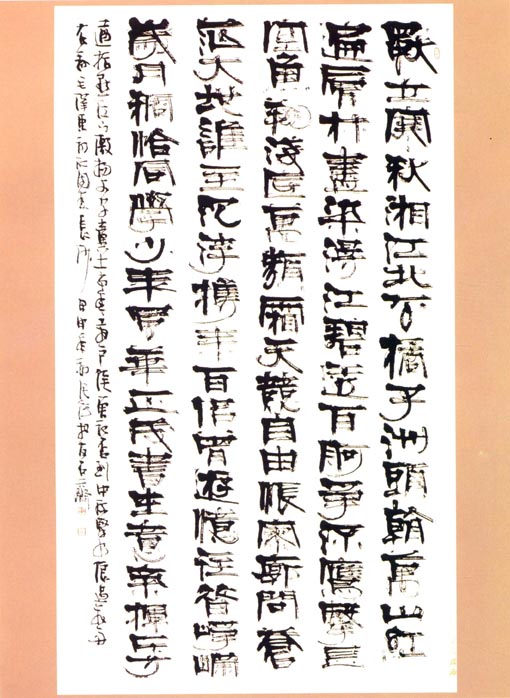 獨立寒秋湘江北去橘子洲頭看萬山紅
遍層林盡染漫江碧透百舸爭流鷹擊長
空魚翔淺底萬類霜天競自由悵寥廓問蒼
茫大地誰主沉浮攜來百侶曾遊憶往昔崢嶸
歲月稠恰同學少年風華正茂書生意氣揮斥方
遒指點江山激揚文字糞土當年萬戶侯曾記否到中流擊水浪遏飛舟
右錄毛澤東詞沁園春長沙 甲申